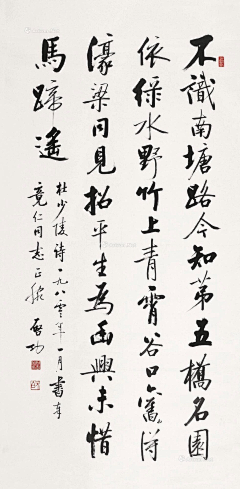 不識南塘路今知第五橋名園
依綠水野竹上青霄谷口舊得
濠梁同見招平生為幽興未惜
馬蹄遙
杜少陵詩一九八零年一月書奉
竟仁同志正腕 啟功